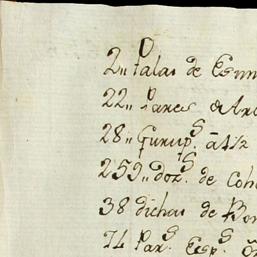 2„ Palas de Esm
22„ Pares de Ar
28„ Gurup.s a 4 1/2
259„ doz.s de Coh
38 dichas de Bor
74 Par.s Esp.s